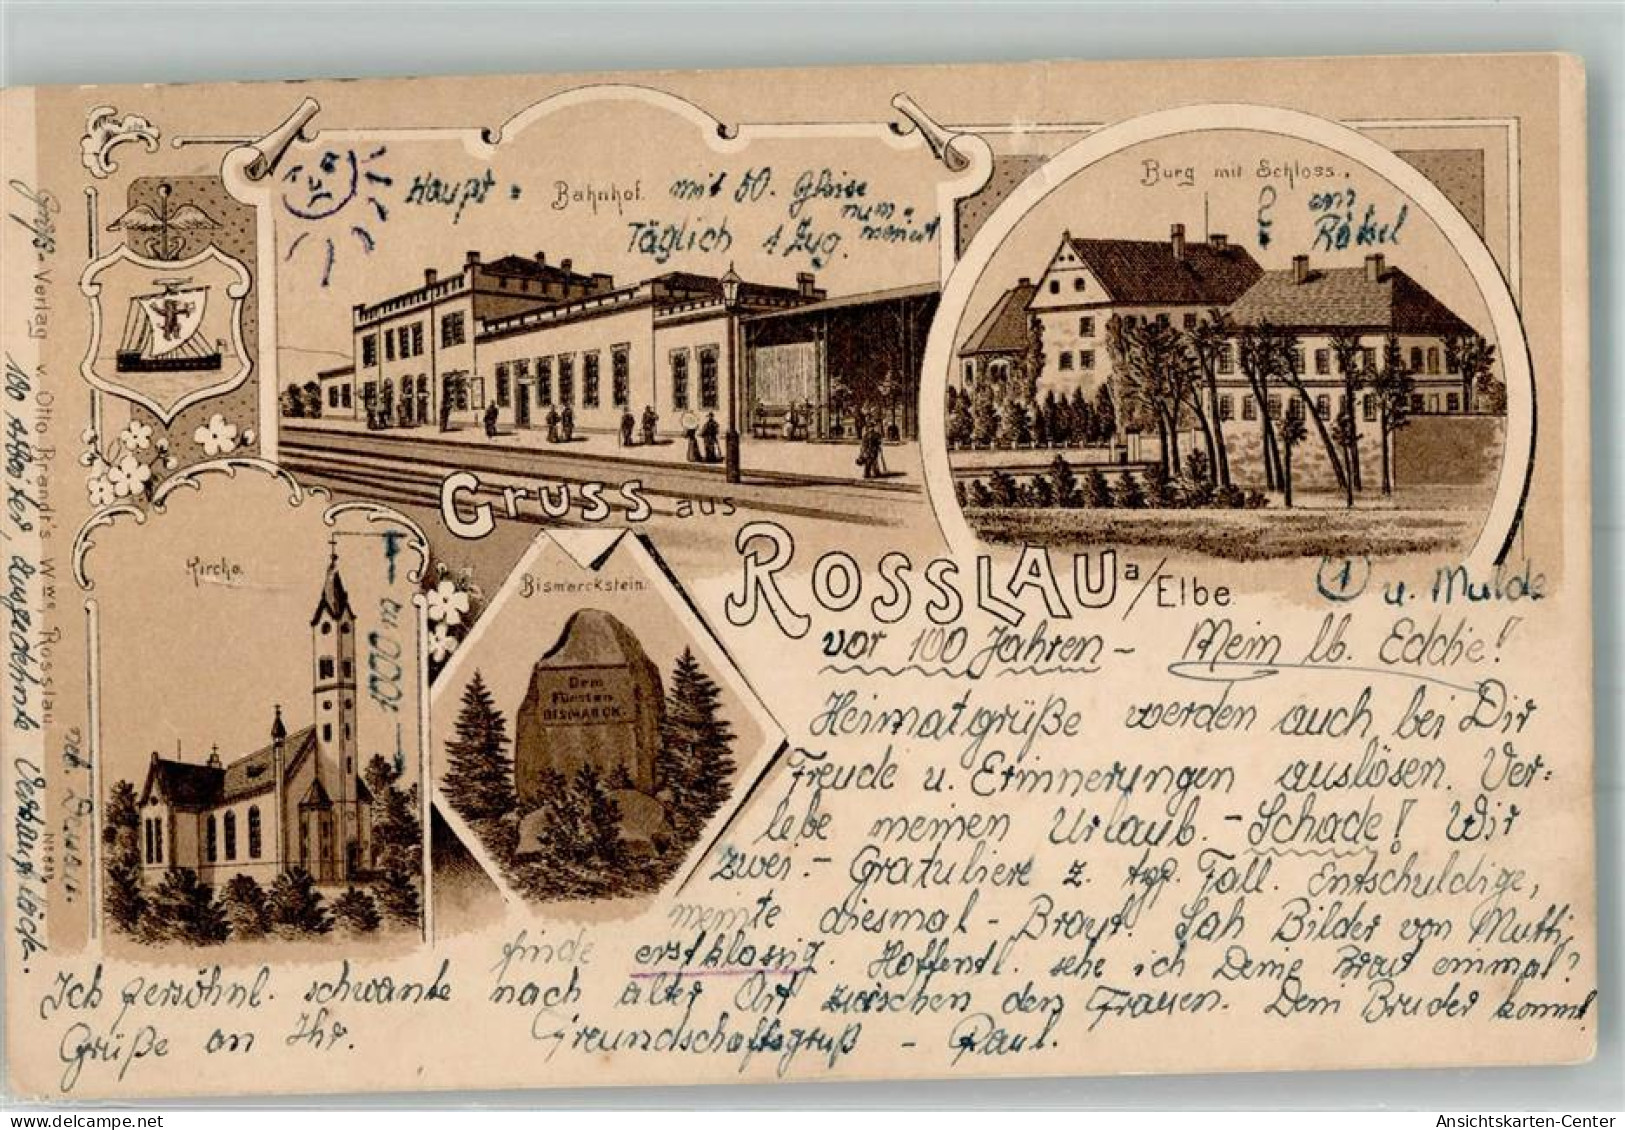 Haupt = Bahnhof. mit 50. Gleise
num=
meriert
Täglich 1 Zug.
Burg mit Schloss.
ein
Rätsel
Kirche.
1000 m
Bismarckstein.
Dem
Fürsten
BISMARCK.
Gruss aus
ROSSLAU a/Elbe.
u. Mulde
vor 100 Jahren - Mein lb. Eddie!
Heimatgrüße werden auch bei Dir
Freude u. Erinnerungen auslösen. Ver=
lebe meinen Urlaub. - Schade! Wir
zwei. - Gratuliere z. Fall. Entschuldige,
meinte diesmal - Braut. Sah Bilder von Mutti,
finde erstklassig. Hoffentl. sehe ich Deine Braut einmal?
Ich persöhnl. schwanke nach alter Art zwischen den Frauen. Dein Bruder kommt.
Grüße an Ihr. Freundschaftsgruß - Paul.
Verlag v. Otto Brandt's Wwe, Rosslau.
Ansichtskarten-Center